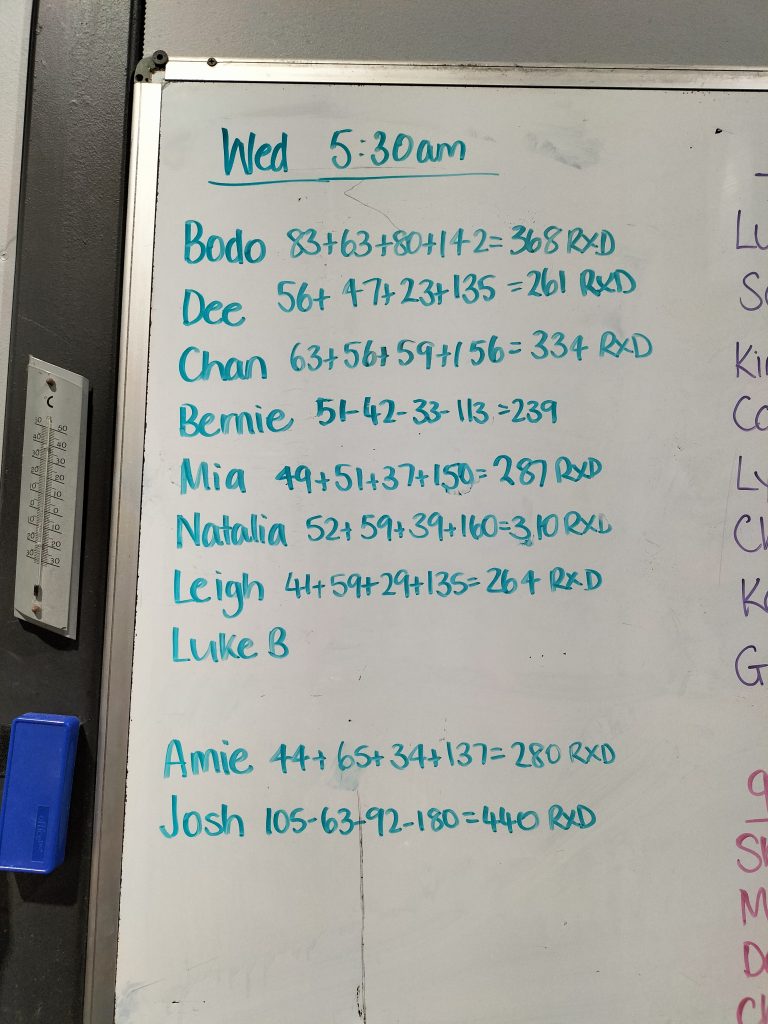 Wed 5:30am
Bodo 83+63+80+142=368 RXD
Dee 56+47+23+135=261 RXD
Chan 63+56+59+156=334 RXD
Bernie 51-42-33-113=239
Mia 49+51+37+150=287 RXD
Natalia 52+59+39+160=310 RXD
Leigh 41+59+29+135=264 RXD
Luke B
Amie 44+65+34+137=280 RXD
Josh 105-63-92-180=440 RXD
Lu
So
Kin
Co
Ly
Ch
G
9
M
C
50
40
30
20
10
0
10
20
30